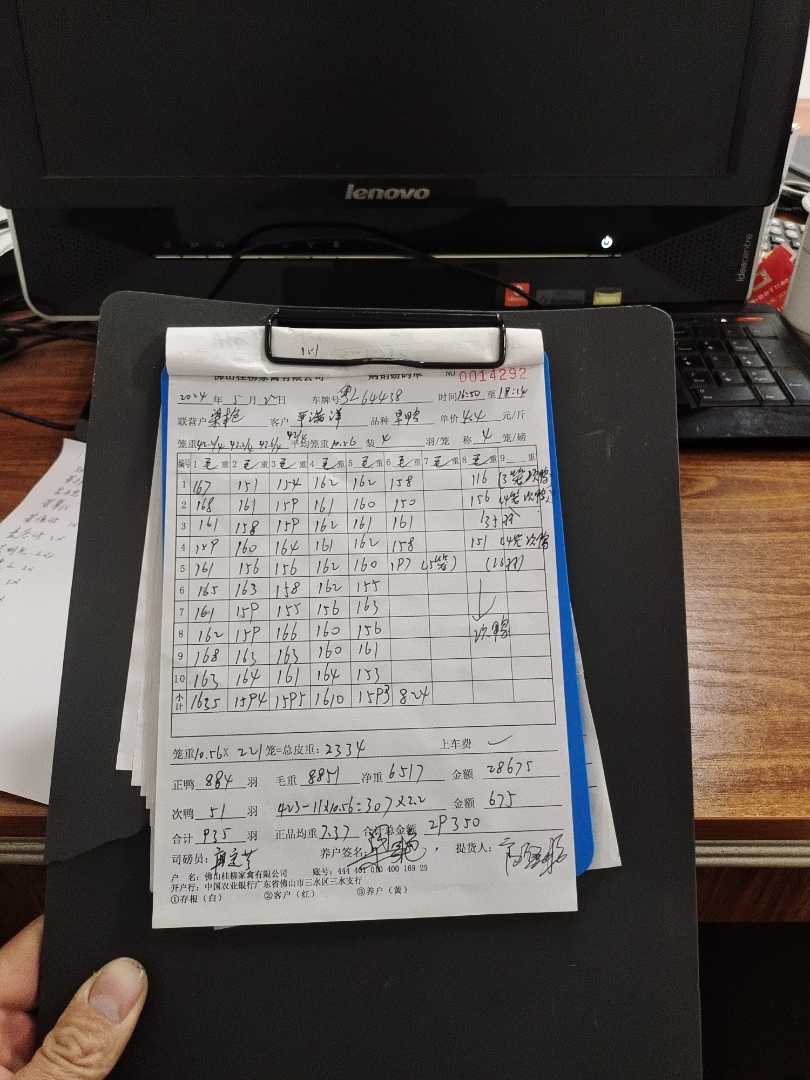 lenovo
ideacentre
151
佛山桂柳家禽有限公司 购销磅码单 NO 0014292
2024 年 5 月 20 日 车牌号 粤L64438 时间 16:50 至 18:14
联营户 客户 品种 早鸭 单价 4.4 元/斤
笼重 42.4/4 42.2/4 42.4/4 42/4 平均笼重 10.56 装 4 羽/笼 称 4 笼/磅
编号 1 毛重 2 毛重 3 毛重 4 毛重 5 毛重 6 毛重 7 毛重 8 毛重 9 重
1 167 151 154 162 162 158 116 (3笼次鸭
2 168 161 159 161 160 150 156 (4笼次鸭)
3 161 158 159 162 161 161 (35羽)
4 159 160 164 161 162 158 151 (4笼次鸭
5 161 156 156 162 160 197 (5笼) (16羽)
6 165 163 158 162 155
7 161 159 155 156 163
8 162 159 166 160 156 次鸭
9 168 163 163 160 161
10 163 164 161 164 153
小计 1635 1594 1595 1610 1593 824
笼重 10.56 × 221 笼=总皮重: 2334 上车费
正鸭 884 羽 毛重 8851 净重 6517 金额 28675
次鸭 51 羽 423-11×10.56=307×2.2 金额 675
合计 935 羽 正品均重 7.37 合计总金额 29350
司磅员: 养户签名: 提货人:
户 名: 佛山桂柳家禽有限公司 账号: 444 401 010 400 169 25
开户行: 中国农业银行广东省佛山市三水区三水支行
①存根(白) ②客户(红) ③养户(黄)